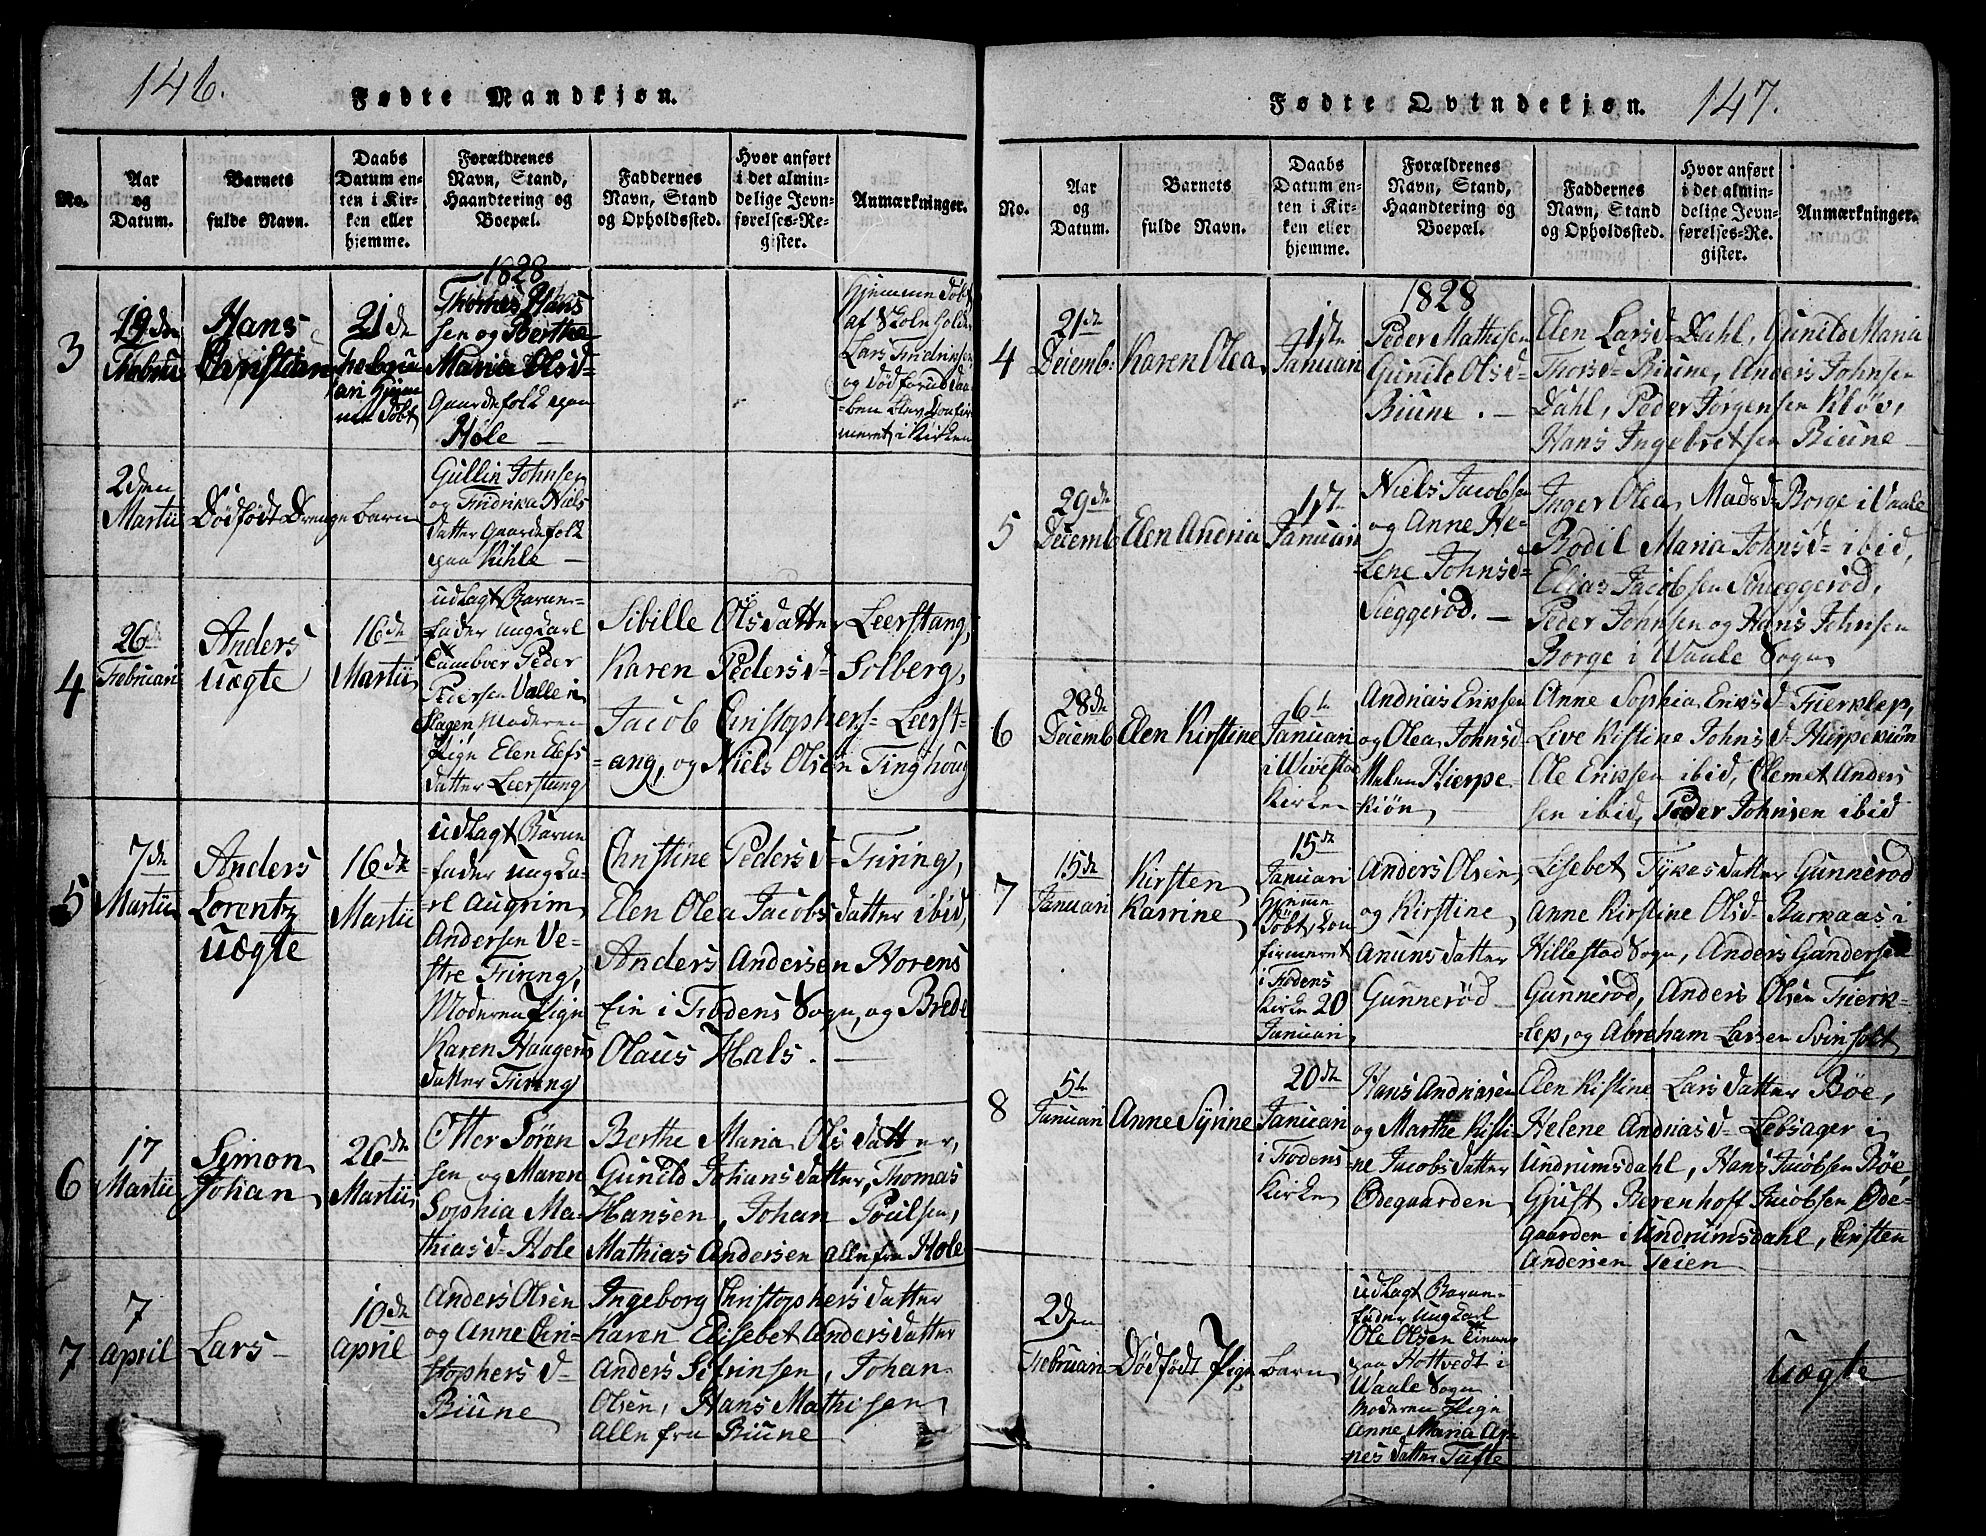 146.
Fødte Mandkjøn.
No.
Aar
og
Datum.
Barnets
fulde Navn.
Daabs
Datum en-
ten i Kir-
ken eller
hjemme.
Forældrenes
Navn, Stand,
Haandtering og
Boepæl.
Faddernes
Navn, Stand
og Opholdssted.
Hvor anført
i det almin-
delige Jevn-
førelses-Re-
gister.
Anmærkninger.
1828
3
19de
Febru
Hans
Christian
21de
Februa
ari hjem
me døbt
Thomes Hans
sen og Berthe
Maria Olsd=
Gaardefolk paa
Hole —
hjemme døbt
af Skoleholder
Lars Fredriksen
og Død forend Daa
=ben blev Confir
meret i Kirken
2den
Martii
Dødfødt Drenge barn
Gullin Johnsen
og Fredrika Niels
datter Gaardefolk
paa Kihle —
4
26de
Februari
Anders
uægte
16de
Martii
udlagt Barne-
fader ungkarl
Peder
Pedersen Valle i
Slagen, Moderen
Pige Elen Elefs
datter Leerstang
Sibille Olsdatter Leerstang,
Karen Pedersd= Solberg,
Jacob Cristophers= Leerst-
=ang, og Niels Olsen Tinghoug
5
7de
Martii
Anders
Lorentz
uægte
16de
Martii
udlagt Barne
=fader ungka
rl Augrim
Andersen Ve-
stre Firing,
Moderen Pige
Karen Haagens
datter Firing
Christine Pedersd= Firing,
Elen Olea Jacobsdatter ibid,
Anders Andersen Horens
Eie i Fødens Sogn, og Brede
Olaus Hals. —
6
17
Martii
Simon
Johan
26de
Martii
Otter Søren
sen og Maren
Sophia Ma-
thiasd= Hole
Berthe Maria Olsdatter,
Gunild Johansdatter, Thomas
Hansen, Johan Poulsen,
Mathias Andersen alle fra Hole
7
7
April
Lars
10de
April
Anders Olsen
og Anne Cri-
stophersd=
Biune
Ingeborg Christophersdatter
Karen Elisebet Andersdatter
Anders Sifrinsen, Johan
Olsen, Hans Mathisen
alle fra Biune
147.
Fødte Qvindekjøn.
No.
Aar
og
Datum.
Barnets
fulde Navn.
Daabs
Datum en-
ten i Kir-
ken eller
hjemme.
Forældrenes
Navn, Stand,
Haandtering og
Boepæl.
Faddernes
Navn, Stand
og Opholdssted.
Hvor anført
i det almin-
delige Jevn-
førelses-Re-
gister.
Anmærkninger.
1828
4
21de
Decemb:
Karen Olea
1ste
Januari
Peder Mathisen
Gunild Olsd=
Biune. —
Elen Larsd= Dahl, Gunild Maria
Thorsd= Biune, Anders Johnsen
Dahl, Peder Jørgensen Kløv,
Hans Ingebretsen Biune
5
29de
Decemb
Elen Andria
1ste
Januari
Niels Jacobsen
og Anne He-
lene Johnsd=
Sieggerød. —
Inger Olea Madsd= Borge i Vaale
Bodil Maria Johnsd= ibid,
Elias Jacobsen Scheggerød,
Peder Johnsen og Hans Johnsen
Borge i Waale Sogn
6
28de
Decemb
Elen Kirstine
6te
Januari
i Wivestad
Kirken
Andreas Eriksen
og Olea Johnsd
Hierpe-
kiøn
Anne Sophia Eriksd= Fierklep,
Live Kistine Johnsd= Hierpekiøn
Ole Eriksen ibid, Clemet Anders
sen ibid, Peder Johnsen ibid
7
15de
Januari
Kirsten
Katrine
15de
Januari
hjemme
døbt, Con
firmeret
i Fødens
Kirke 20
Januari
Anders Olsen,
og Kirstine
Amunsdatter
Gunnerød
Lisebet Tykesdatter Gunnerød
Anne Kirstine Olsd= Barkaas i
Hillestad Sogn, Anders Gundersen
Gunnerød, Anders Olsen Fierk-
lep, og Abraham Larsen Svinholt
8
5te
Januari
Anne Syrine
20de
Januari
i Fødens
Kirke
Hans Andreasen
og Marthe Kisti
ne Jacobsdatter
Ødegaarden
Elen Kistine Larsdatter Bøe,
Helene Andreasd= Lebsager i
Undrumsdahl, Hans Jacobsen Bøe,
Gjust Berenhoff Jacobsen Øde-
gaarden i Undrumsdahl, Cristen
Andersen Teien
2den
Februari
Dødfødt Pige barn
udlagt Barne-
fader ungkarl
Ole Olsen Einung
paa Hottvedt i
Waale Sogn
Moderen Pige
Anne Maria Ar-
nesdatter Tufte
uægte